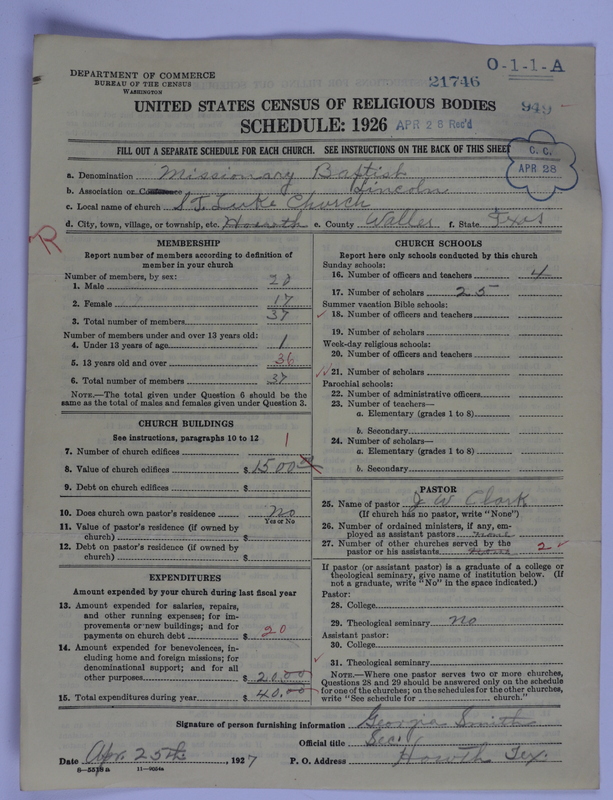 O-1-1-A
DEPARTMENT OF COMMERCE
BUREAU OF THE CENSUS
WASHINGTON
21746
949
UNITED STATES CENSUS OF RELIGIOUS BODIES
SCHEDULE: 1926 APR 28 Rec'd
FILL OUT A SEPARATE SCHEDULE FOR EACH CHURCH. SEE INSTRUCTIONS ON THE BACK OF THIS SHEET
C. C.
APR 28
a. Denomination Missionary Baptist
b. Association or Conference Lincoln
c. Local name of church ST. Luke Church
d. City, town, village, or township, etc. Howth e. County Waller f. State Texas
R
MEMBERSHIP
Report number of members according to definition of
member in your church
Number of members, by sex:
1. Male 20
2. Female 17
3. Total number of members 37
Number of members under and over 13 years old:
4. Under 13 years of age 1
5. 13 years old and over 36
6. Total number of members 37
NOTE.—The total given under Question 6 should be the
same as the total of males and females given under Question 3.
CHURCH BUILDINGS
See instructions, paragraphs 10 to 12
7. Number of church edifices 1
8. Value of church edifices $1500
9. Debt on church edifices $
10. Does church own pastor's residence No
Yes or No
11. Value of pastor's residence (if owned by
church) $
12. Debt on pastor's residence (if owned by
church) $
EXPENDITURES
Amount expended by your church during last fiscal year
13. Amount expended for salaries, repairs,
and other running expenses; for im-
provements or new buildings; and for
payments on church debt $ 20
14. Amount expended for benevolences, in-
cluding home and foreign missions; for
denominational support; and for all
other purposes $ 20.00
15. Total expenditures during year $ 40.00
CHURCH SCHOOLS
Report here only schools conducted by this church
Sunday schools:
16. Number of officers and teachers 4
17. Number of scholars 25
Summer vacation Bible schools:
18. Number of officers and teachers
19. Number of scholars
Week-day religious schools:
20. Number of officers and teachers
21. Number of scholars
Parochial schools:
22. Number of administrative officers
23. Number of teachers—
a. Elementary (grades 1 to 8)
b. Secondary
24. Number of scholars—
a. Elementary (grades 1 to 8)
b. Secondary
PASTOR
25. Name of pastor J W Clark
(If church has no pastor, write "None")
26. Number of ordained ministers, if any, em-
ployed as assistant pastors none
27. Number of other churches served by the
pastor or his assistants 2
If pastor (or assistant pastor) is a graduate of a college or
theological seminary, give name of institution below. (If
not a graduate, write "No" in the space indicated.)
Pastor:
28. College
29. Theological seminary no
Assistant pastor:
30. College
31. Theological seminary
NOTE.—Where one pastor serves two or more churches,
Questions 28 and 29 should be answered only on the schedule
for one of the churches; on the schedules for the other churches,
write "See schedule for church."
Signature of person furnishing information Georgia Smith
Official title Sec.
Date Apr. 25th, 1927 P. O. Address Howth Tex.
8—5518a 11—9024a